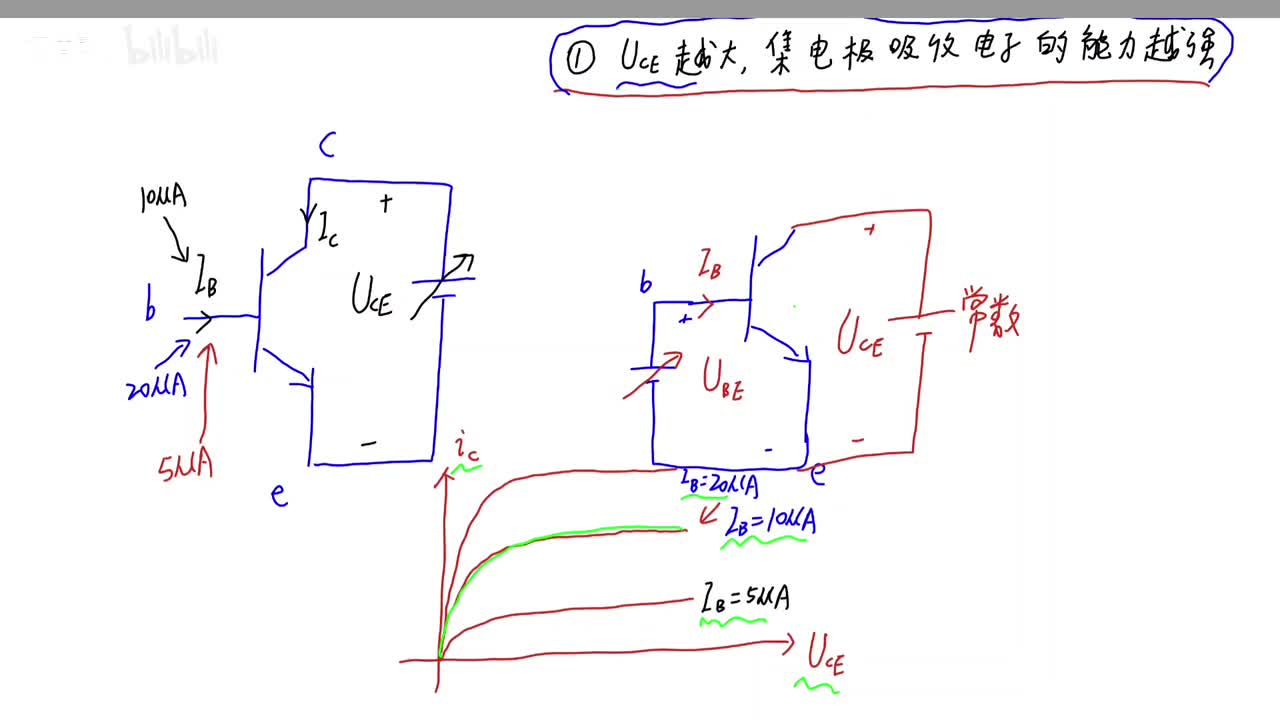 bilibili
① UCE 越大, 集电极吸收电子的能力越强
C
10μA
+
IC
IB
b
UCE
20μA
5μA
-
e
+
IB
b
+
UCE
常数
UBE
-
-
e
iC
IB=20μA
IB=10μA
IB=5μA
UCE